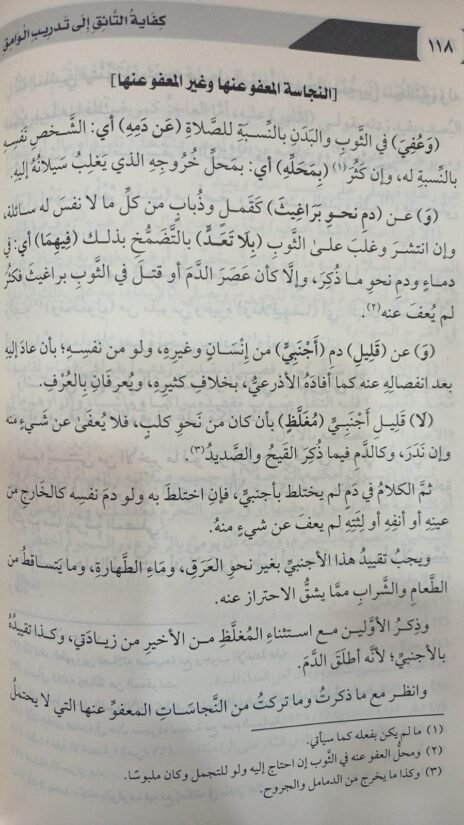 كفاية التائق إلى تدريب الوامق
١١٨
[النجاسة المعفو عنها وغير المعفو عنها]
(وَعُفِيَ) في الثَّوبِ والبَدَنِ بالنِّسبةِ للصَّلاةِ (عَن دَمِهِ) أي: الشَّخصِ نَفسِهِ
بالنِّسبةِ له، وإن كَثُرَ(١) (بِمَحَلِّهِ) أي: بمَحلِّ خُروجِهِ الذي يَغلِبُ سَيلانُهُ إليهِ.
(وَ) عن (دمِ نحوِ بَرَاغِيثَ) كَقَملٍ وذُبابٍ من كلِّ ما لا نفسَ له سائلة،
وإن انتشرَ وغلبَ علىٰ الثَّوبِ (بِلا تَعَدٍّ) بالتَّضمُّخِ بذلك (فِيهِمَا) أي: في
دماءِ ودمِ نحوِ ما ذُكِرَ، وإلَّا كأن عَصَرَ الدَّمَ أو قتلَ في الثَّوبِ براغيثَ فكثُرَ
لم يُعفَ عنه(٢).
(وَ) عن (قَلِيلِ) دمِ (أَجْنَبِيٍّ) من إنسَانٍ وغيرِهِ، ولو من نفسِهِ؛ بأن عادَ إليهِ
بعد انفصالِهِ عنه كما أفادَهُ الأذرعيُّ، بخلافِ كثيرِهِ، ويُعرفَانِ بالعُرْفِ.
(لَا) قليلِ أجنَبيٍّ (مُغَلَّظٍ) بأن كان من نَحوِ كلبٍ، فلا يُعفَىٰ عن شَيءٍ منه
وإن نَدَرَ، وكالدَّمِ فيما ذُكِرَ القَيحُ والصَّديدُ(٣).
ثمَّ الكلامُ في دَمٍ لم يختلط بأجنبيٍّ، فإنِ اختلطَ به ولو دمَ نفسِه كالخارجِ من
عينِهِ أو أنفِهِ أو لِثتِهِ لم يعفَ عن شيءٍ منهُ.
ويجبُ تقييدُ هذا الأجنبيِّ بغيرِ نحوِ العَرَقِ، ومَاءِ الطَّهارةِ، وما يَتساقطُ من
الطَّعامِ والشَّرابِ ممَّا يشقُّ الاحترازُ عنه.
وذِكرُ الأوَّلَينِ مع استثناءِ المُغلَّظِ مـن الأخيرِ من زيادَتي، وكـذا تقييدُهُ
بالأجنبيِّ؛ لأنَّه أطلَقَ الدَّمَ.
وانظر مع ما ذكرتُ وما تركتُ من النَّجاسَاتِ المعفوِّ عنها التي لا يحتملُ
(١) ما لم يكن بفعله كما سيأتي.
(٢) ومحلُّ العفو عنه في الثَّوب إن احتاج إليه ولو للتجمل وكان ملبوسًا.
(٣) وكذا ما يخرج من الدمامل والجروح.